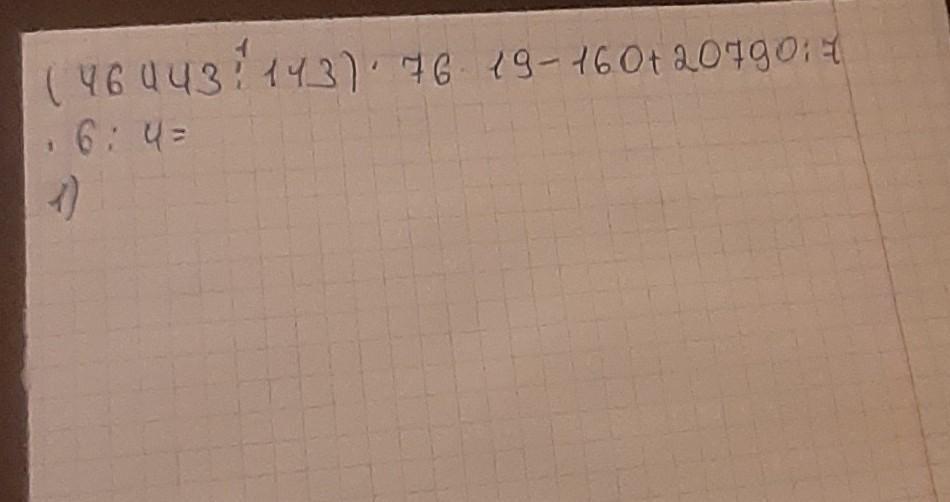 1
(46443:113)·76·19-160+20790:7
·6:4=
1)